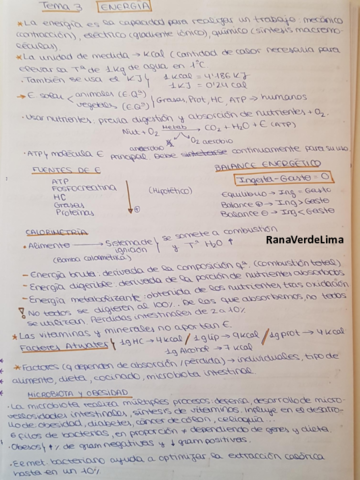 Tema 3 ENERGÍA
* La energía es la capacidad para realizar un trabajo: mecánico
(contracción), eléctrico (gradiente iónico), químico (síntesis macromo-
léculas)
* La unidad de medida → Kcal (cantidad de calor necesaria para
elevar la Tª de 1 kg de agua en 1°C
· También se usa el KJ 1 Kcal = 4'186 KJ
1 KJ = 0'24 Cal
* E solar animales (E.Qª) Grasas, Prot, HC, ATP → humanos
vegetales (E.Gª)
· Usar nutrientes: previa digestión y absorción de nutrientes + O2
Nut + O2 → CO2 + H2O + E (ATP)
anaerobio aerobio
O2
· ATP, molécula E principal. Debe continuamente para su uso
FUENTES DE E
BALANCE ENERGÉTICO
ATP
Fosfocreatina
HC
Grasas
Proteínas
Ingesta - Gasto = 0
Equilibrio → Ing = Gasto
Balance ⊕ → Ing > Gasto
Balance ⊖ → Ing < Gasto
CALORIMETRÍA
RanaVerdeLima
· Alimento → Sistema de ignición se somete a combustión
y Tª H2O ↑
(Bomba calorimétrica)
- Energía bruta: derivada de la composición qª (combustión total)
- Energía digerible: derivada de la porción de nutrientes absorbidos
- Energía metabolizable: obtenida de los nutrientes tras oxidación
! No todos se digieren al 100%. De los que absorbemos no todos
se utilizan. Pérdidas intestinales de 2 a 10%
* Las vitaminas y minerales no aportan E.
Factores Atwater 1g HC → 4 Kcal / 1g lip → 9 Kcal / 1g prot → 4 Kcal
1g Alcohol → 7 Kcal
* Factores (q dependen de absorción/pérdida) → individuales, tipo de
alimento, dieta, cocinado, microbiota intestinal
MICROBIOTA Y OBESIDAD
La microbiota realiza múltiples procesos: defensa, desarrollo de micro-
vellosidades intestinales, síntesis de vitaminas, influye en el desarro-
llo de: obesidad, diabetes, cáncer de colon, celiaquía...
filos de bacterias, en proporción ≠ dependiendo de genes y dieta
Obesos ↑ de gram negativas y ↓ gram positivas.
· Ecmet bacteriano ayuda a optimizar la extracción calórica
hasta en un 10%